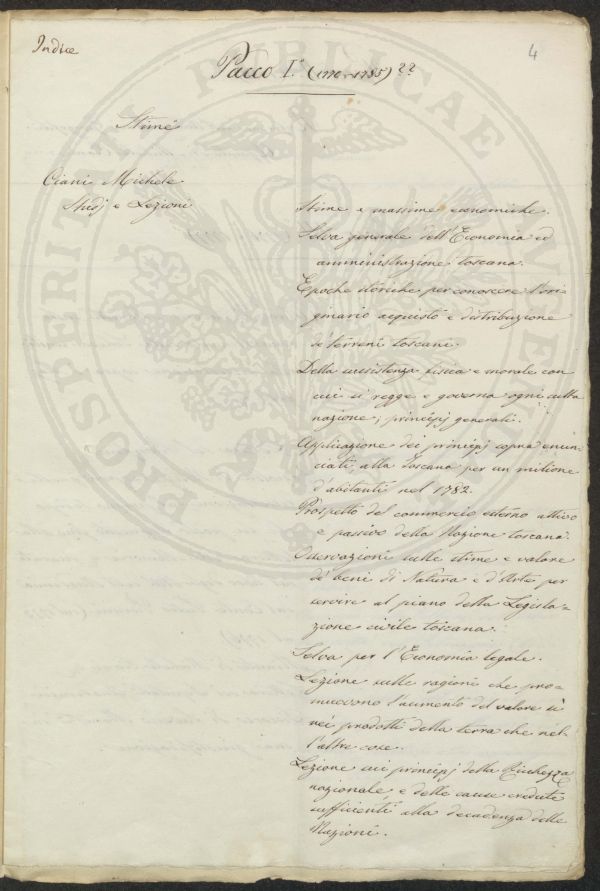 Indice
4
Pacco I.° (1770-1785) ??
Stime
Ciani Michele
Studj e Lezioni
Stime e massime economiche.
Selva generale dell'Economia ed
amministrazione toscana.
Epoche storiche per conoscere l'ori-
ginario acquisto e distribuzione
de' terreni toscani.
Della sussistenza fisica e morale con
cui si regge e governa ogni culta
nazione; principj generali.
Applicazione dei principj sopra enun-
ciati, alla Toscana per un milione
d'abitanti nel 1782.
Prospetto del commercio esterno attivo
e passivo della Nazione toscana.
Osservazioni sulle stime e valore
de' beni di Natura e d'Arte per
servire al piano della Legisla-
zione civile toscana.
Selva per l'Economia legale.
Lezione sulle ragioni che pro-
muovono l'aumento del valore sì
nei prodotti della terra che nel-
l'altre cose.
Lezione sui principj della Ricchezza
nazionale e delle cause credute
sufficienti alla decadenza delle
Nazioni.
PROSPERITATI PUBLICAE